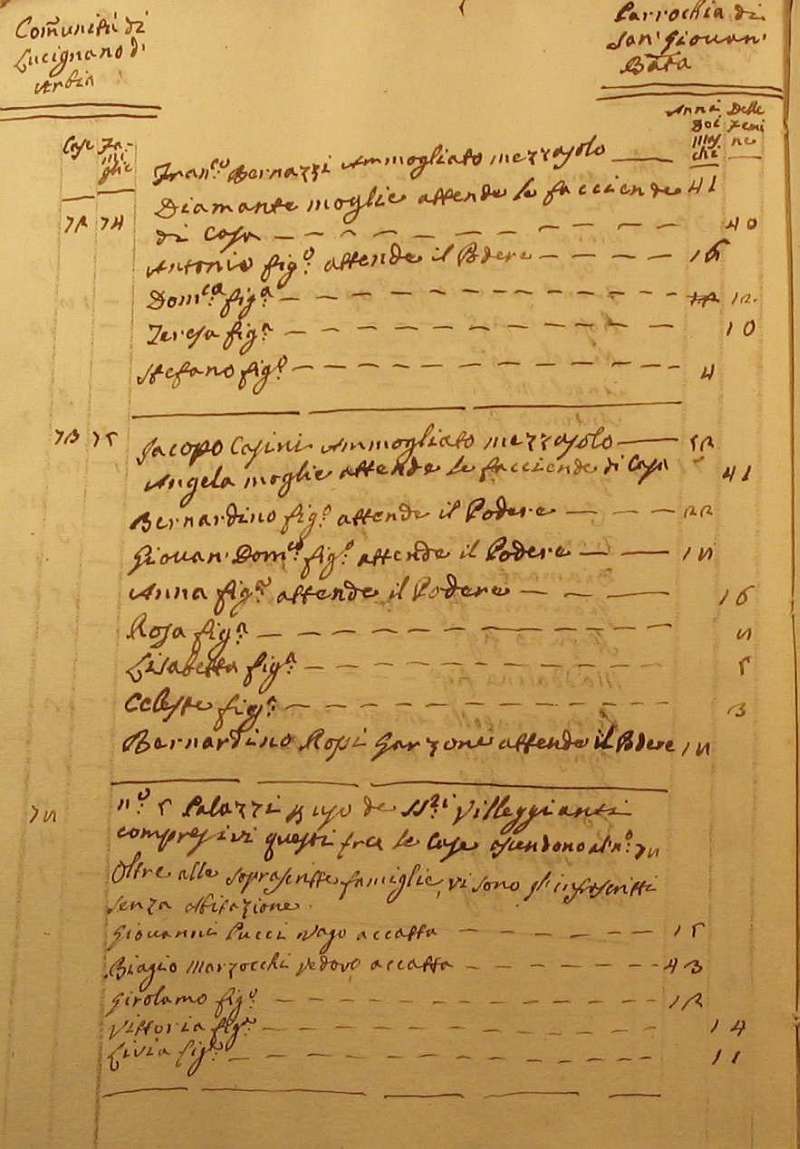 Com̃unità di
Lucignano d'
Arbia
Parrochia di
San' Giovan'
Bata
Case Fa-
mi
glie
Anni
Dei
Mas
chi
Delle
Femi
ne
Fran.co Bernazzi Ammogliato mezzajolo
Diamante moglie attende le facciende 41
72 74 di Casa 40
Antonio fig.o attende il Pdere 16
Dom.ca fig.a 12 12
Teresa fig.a 10
Stefano fig.o 4
73 75 Jacopo Casini Ammogliato mezzajolo 52
Angela moglie attende le facciende di Casa 41
Bernardino fig.o attende il Podere 22
Giovan' Dom.co fig.o attende il Podere 18
Anna fig.a attende il Podere 16
Rosa fig.a 8
Lisabetta fig.a 5
Celeste fig.a 3
Bernardino Rossi Garzone attende il Pdere 18
78 n.o 5 Palazzi uso de SS.ri Villeggianti
compresivi questi fra le Case ascendono al n.o 78
Oltre alle soprascritte famiglie, vi sono gl'infrascritti
senza abitazione.
Giovanni Pucci vago accatta 15
Biagio Marzocchi vedovo accatta 43
Girolamo fig.o 12
Vittoria fig.a 14
Livia fig.a 11